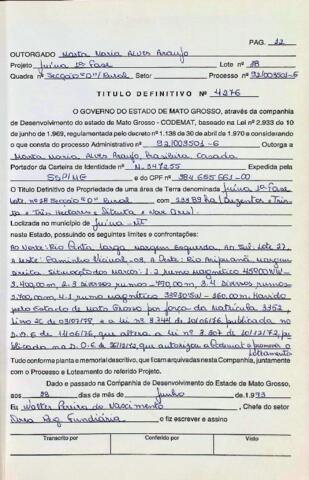 PAG. 22
OUTORGADO Marta Maria Alves Araujo
Projeto Juina 1ª Fase Lote nº 28
Quadra nº Secção "D"/Rural Setor Processo nº 92/003501-6
TITULO DEFINITIVO Nº 4276
O GOVERNO DO ESTADO DE MATO GROSSO, através da companhia
de Desenvolvimento do estado de Mato Grosso - CODEMAT, baseado na Lei nº 2.933 de 10
de junho de 1.969, regulamentada pelo decreto nº 1.138 de 30 de abril de 1.970 e considerando o
que consta do processo Administrativo nº 92/003501-6 Outorga a
Marta Maria Alves Araujo, brasileira, casada
Portador da Carteira de Identidade nº Expedida pela
SSP/MG e do CPF nº 384 655 661-00
O Titulo Definitivo de Propriedade de uma área de Terra denominada Juina 1ª Fase
Lote nº 28 Secção "D" Rural com 233,89 ha (Duzentos e Trin
ta e Três Hectares e Oitenta e Nove Ares).
Localizada no município de Juina - MT
neste Estado, possuindo os seguintes limites e confrontações:
Ao Norte: Rio margem esquerda, Ao Sul: Lote 27,
A Leste: Caminho Vicinal-03, A Oeste: Rio Aripuanã margem
direita Situação dos marcos: 1.2 rumo magnético
3.400,00 m, 2.3 diversos rumos 3.4 diversos rumos
2.700,00 m, 4.1 rumo magnético 360,00 m. Havido
pelo Estado de Mato Grosso por força da Matrícula
Livro 2C de 03/07/78 e a Lei nº 3.744 de 10/06/76 publicada no
D.O.E de 14/06/76, que altera a Lei nº 3.307 de 10/12/72, pu
blicada no D.O.E de que autorizou a Codemat a promover o
Loteamento
Tudo conforme planta e memorial descritivo, que ficam arquivadas nesta Companhia, juntamente
com o Processo e Loteamento do referido Projeto.
Dado e passado na Companhia de Desenvolvimento do Estado de Mato Grosso,
aos 28 dias do mês de Junho de 1.993
Eu Walter Pereira do Nascimento, Chefe do setor
Reg. Fundiária o fiz escrever e assino
Transcrito por Conferido por Visto